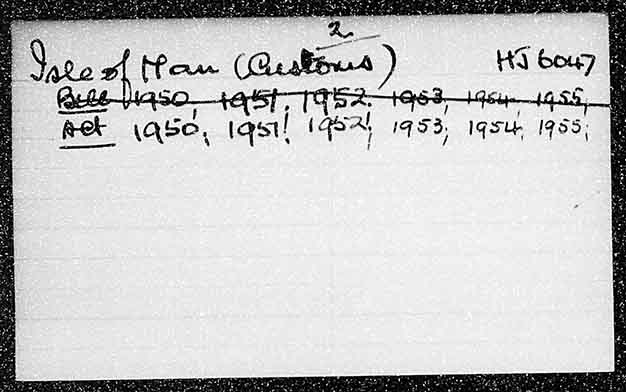 2
Isle of Man (Customs) HJ 6047
Bill 1950, 1951, 1952, 1953, 1954, 1955,
Act 1950, 1951, 1952, 1953, 1954, 1955,